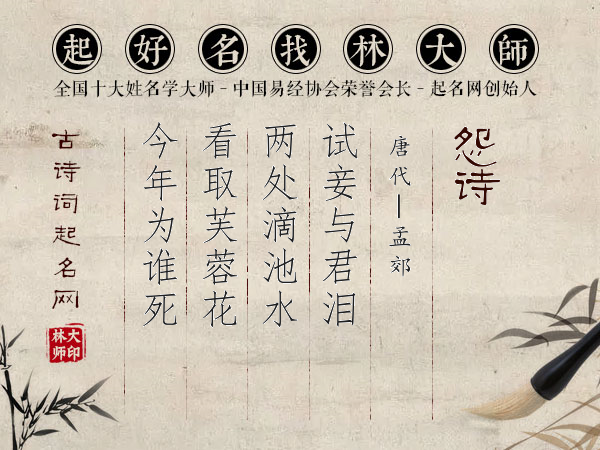 起好名找林大師
全国十大姓名学大师-中国易经协会荣誉会长-起名网创始人
怨诗
唐代—孟郊
试妾与君泪
两处滴池水
看取芙蓉花
今年为谁死
古诗词起名网
大印
林师